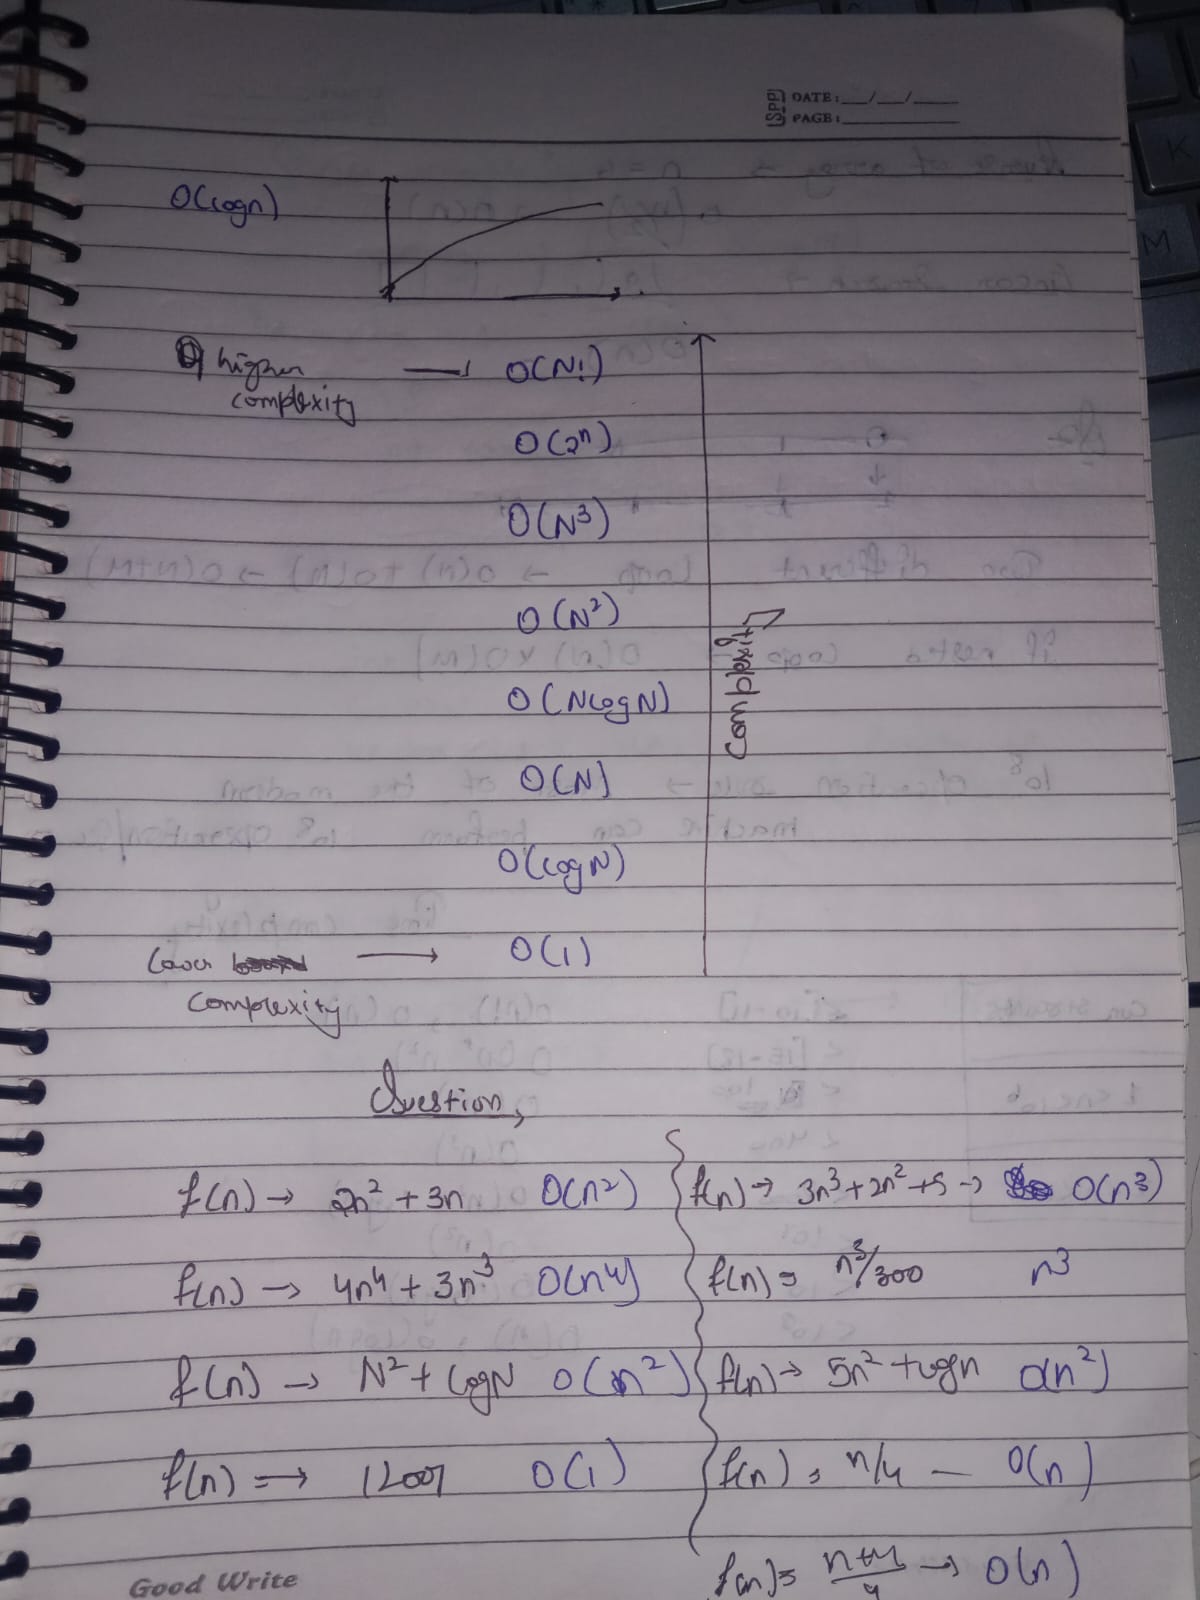 DATE: __/__/____
PAGE: ________
O(logn)
higher → O(N!)
complexity
O(2ⁿ)
O(N³)
O(N²)
complexity
O(NlogN)
O(N)
O(logN)
Lower → O(1)
complexity
Question,
f(n) → 2n² + 3n O(n²)
f(n) → 4n⁴ + 3n³ O(n⁴)
f(n) → N² + logN O(n²)
f(n) → O(1)
f(n) → 3n³ + 2n² + 5 → O(n³)
f(n) = n³/300 n³
f(n) → 5n² + logn O(n²)
f(n) = n/4 — O(n)
f(n) = n+4/4 → O(n)
Good Write